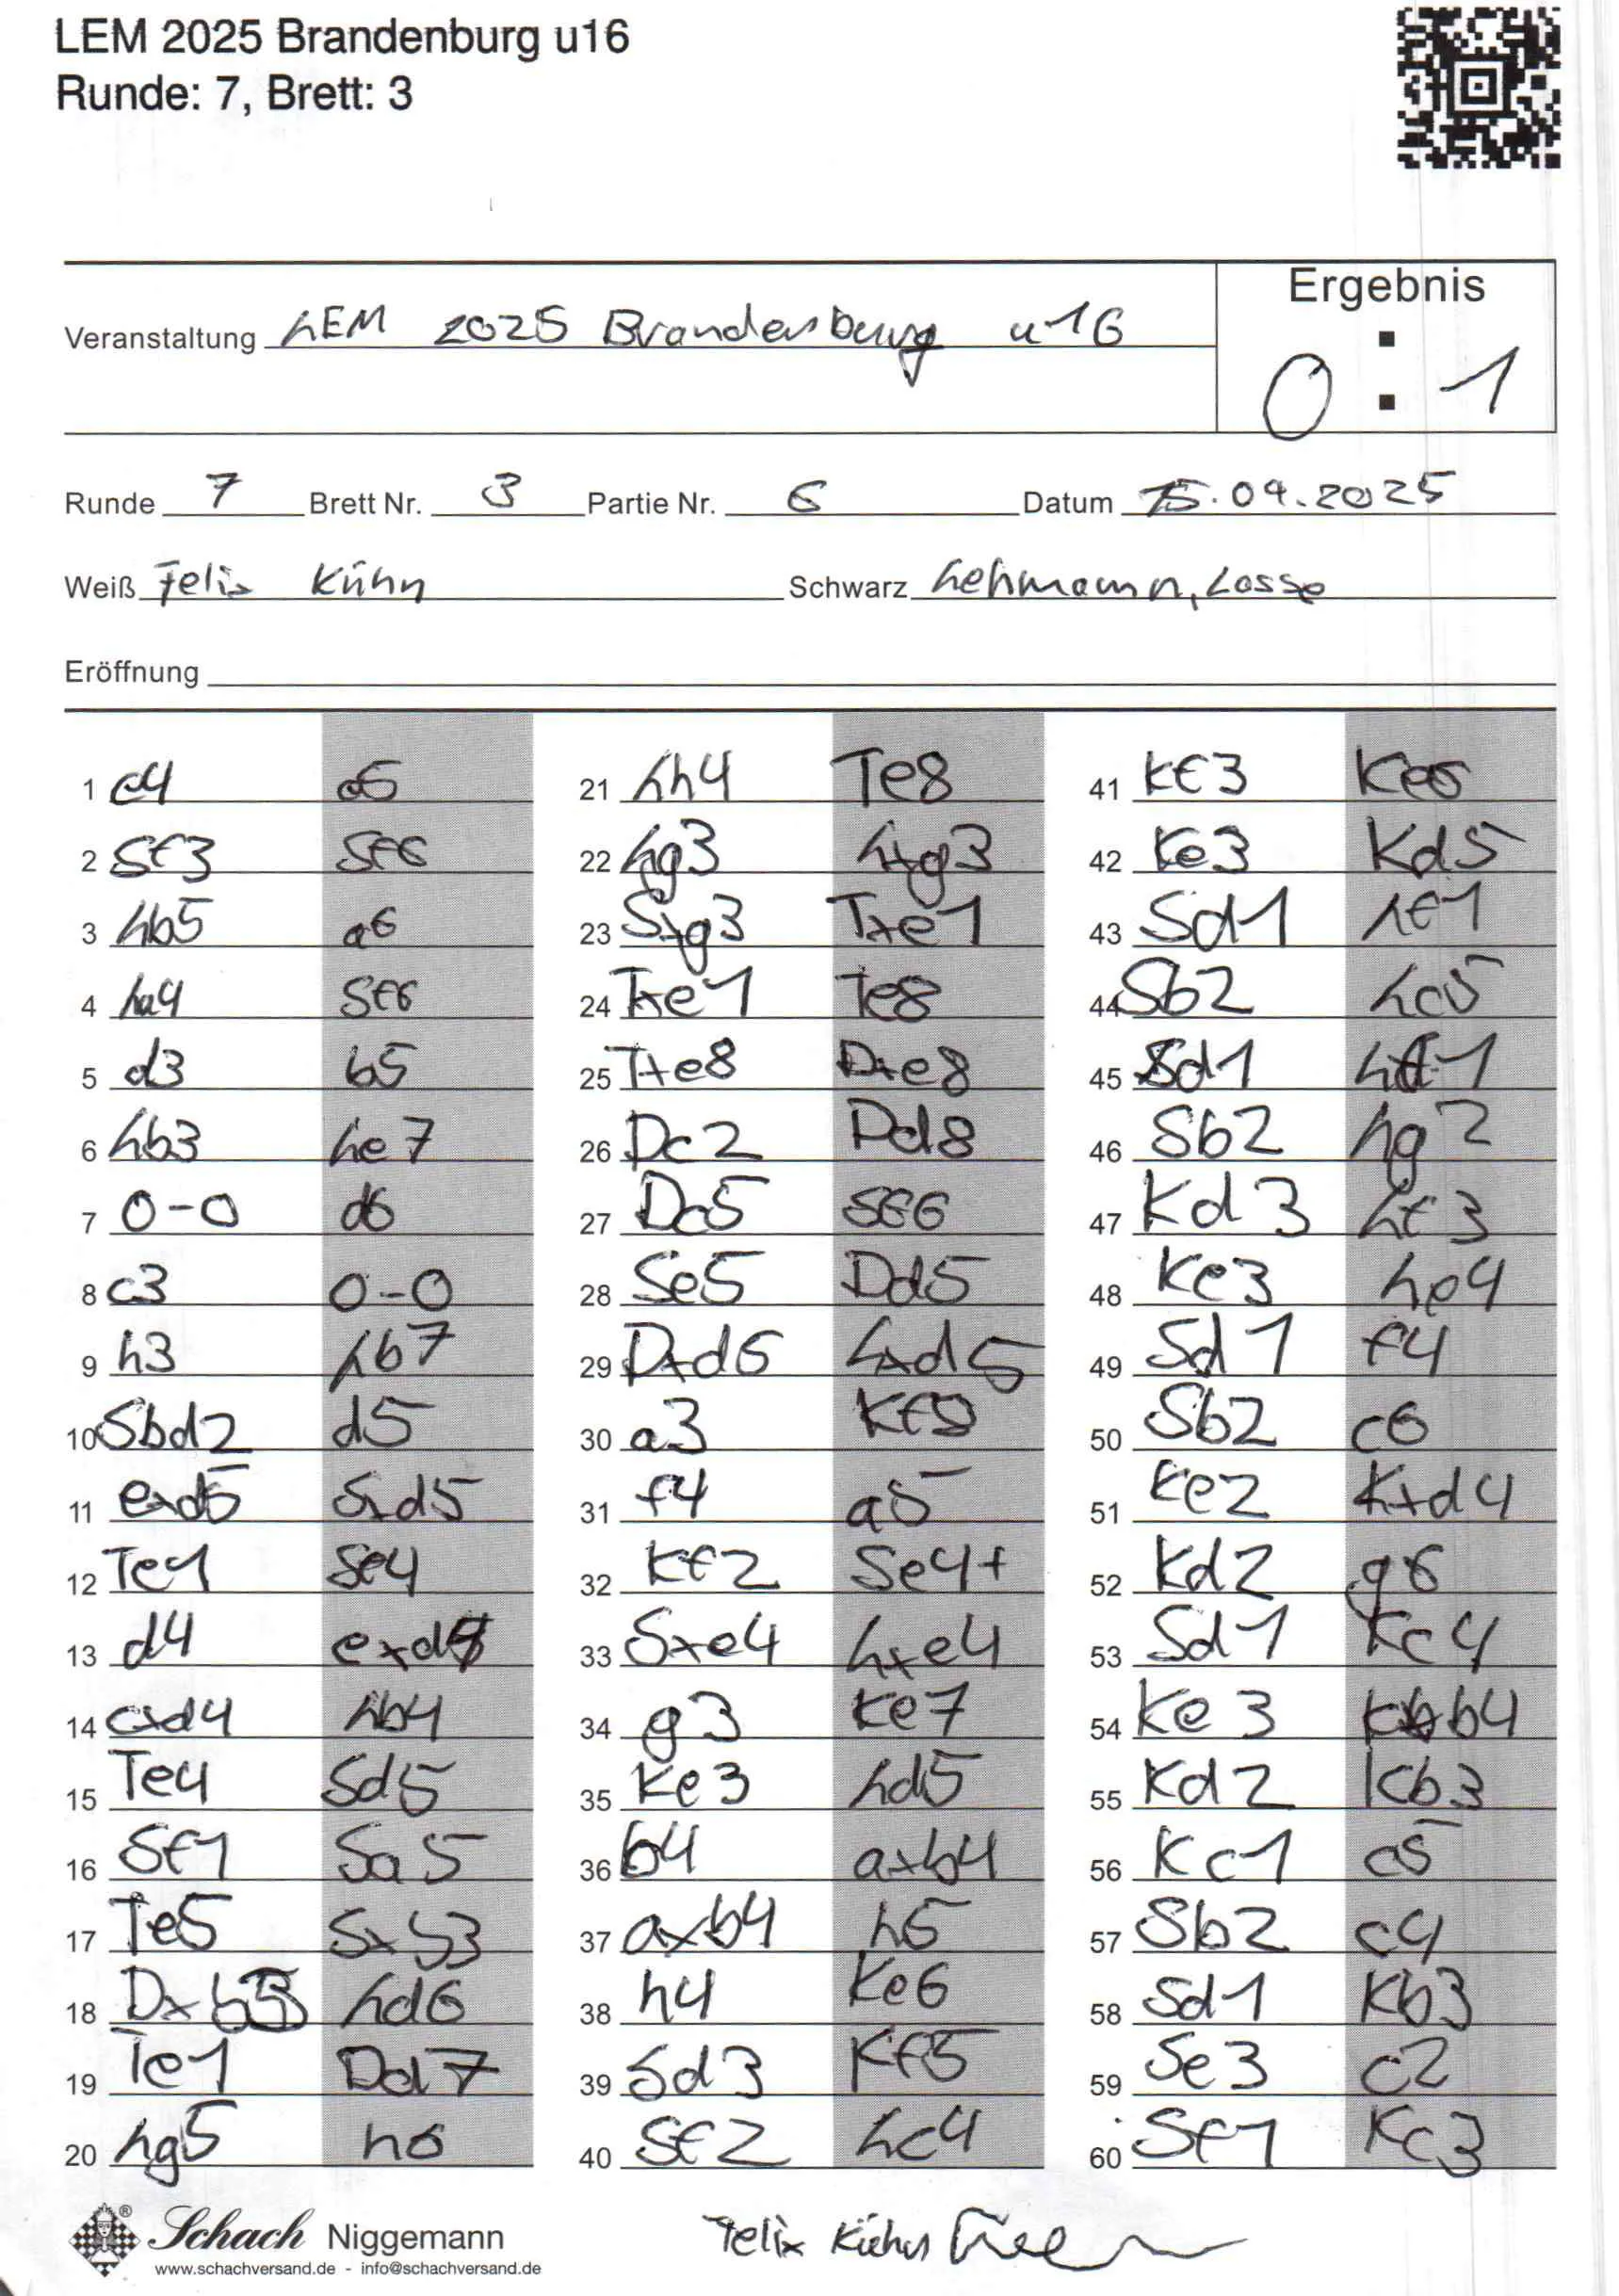 LEM 2025 Brandenburg u16
Runde: 7, Brett: 3
Ergebnis
Veranstaltung LEM 2025 Brandenburg u16
0 : 1
Runde 7 Brett Nr. 3 Partie Nr. 6 Datum 15.04.2025
Weiß Felix Kühn Schwarz Lehmann, Lasse
Eröffnung
1 e4 e5
2 Sf3 Sf6
3 Lb5 a6
4 La4 Sf6
5 d3 b5
6 Lb3 Le7
7 0-0 d6
8 c3 0-0
9 h3 Lb7
10 Sbd2 d5
11 exd5 Sxd5
12 Te1 Sf4
13 d4 exd4
14 cxd4 Lb4
15 Te4 Sd5
16 Sf1 Sa5
17 Te5 Sxb3
18 Dxb3 Ld6
19 Te1 Dd7
20 Lg5 h6
21 Lh4 Te8
22 Lg3 Lxg3
23 Sxg3 Txe1
24 Txe1 Te8
25 Txe8 Dxe8
26 Dc2 Dd8
27 Dc5 Sf6
28 Se5 Dd5
29 Dxd5 Lxd5
30 a3 Kf8
31 f4 a5
32 Kf2 Se4+
33 Sxe4 Lxe4
34 g3 Ke7
35 Ke3 Ld5
36 b4 axb4
37 axb4 h5
38 h4 Ke6
39 Sd3 Kf5
40 Sf2 Lc4
41 Kf3 Ke6
42 Ke3 Kd5
43 Sd1 Lf1
44 Sb2 Lc5
45 Sd1 Lf1
46 Sb2 Lg2
47 Kd3 Lf3
48 Ke3 Le4
49 Sd1 f4
50 Sb2 c6
51 Ke2 Kxd4
52 Kd2 g6
53 Sd1 Kc4
54 Ke3 Kb4
55 Kd2 Kb3
56 Kc1 c5
57 Sb2 c4
58 Sd1 Kb3
59 Se3 c2
60 Sf1 Kc3
Schach Niggemann
www.schachversand.de - info@schachversand.de
Felix Kühn